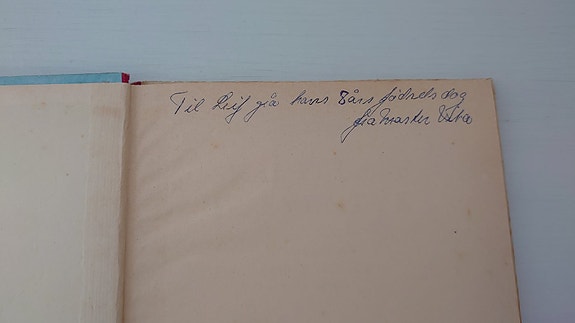 Til Leif på hans 8års fødselsdag
fra moster Vibo